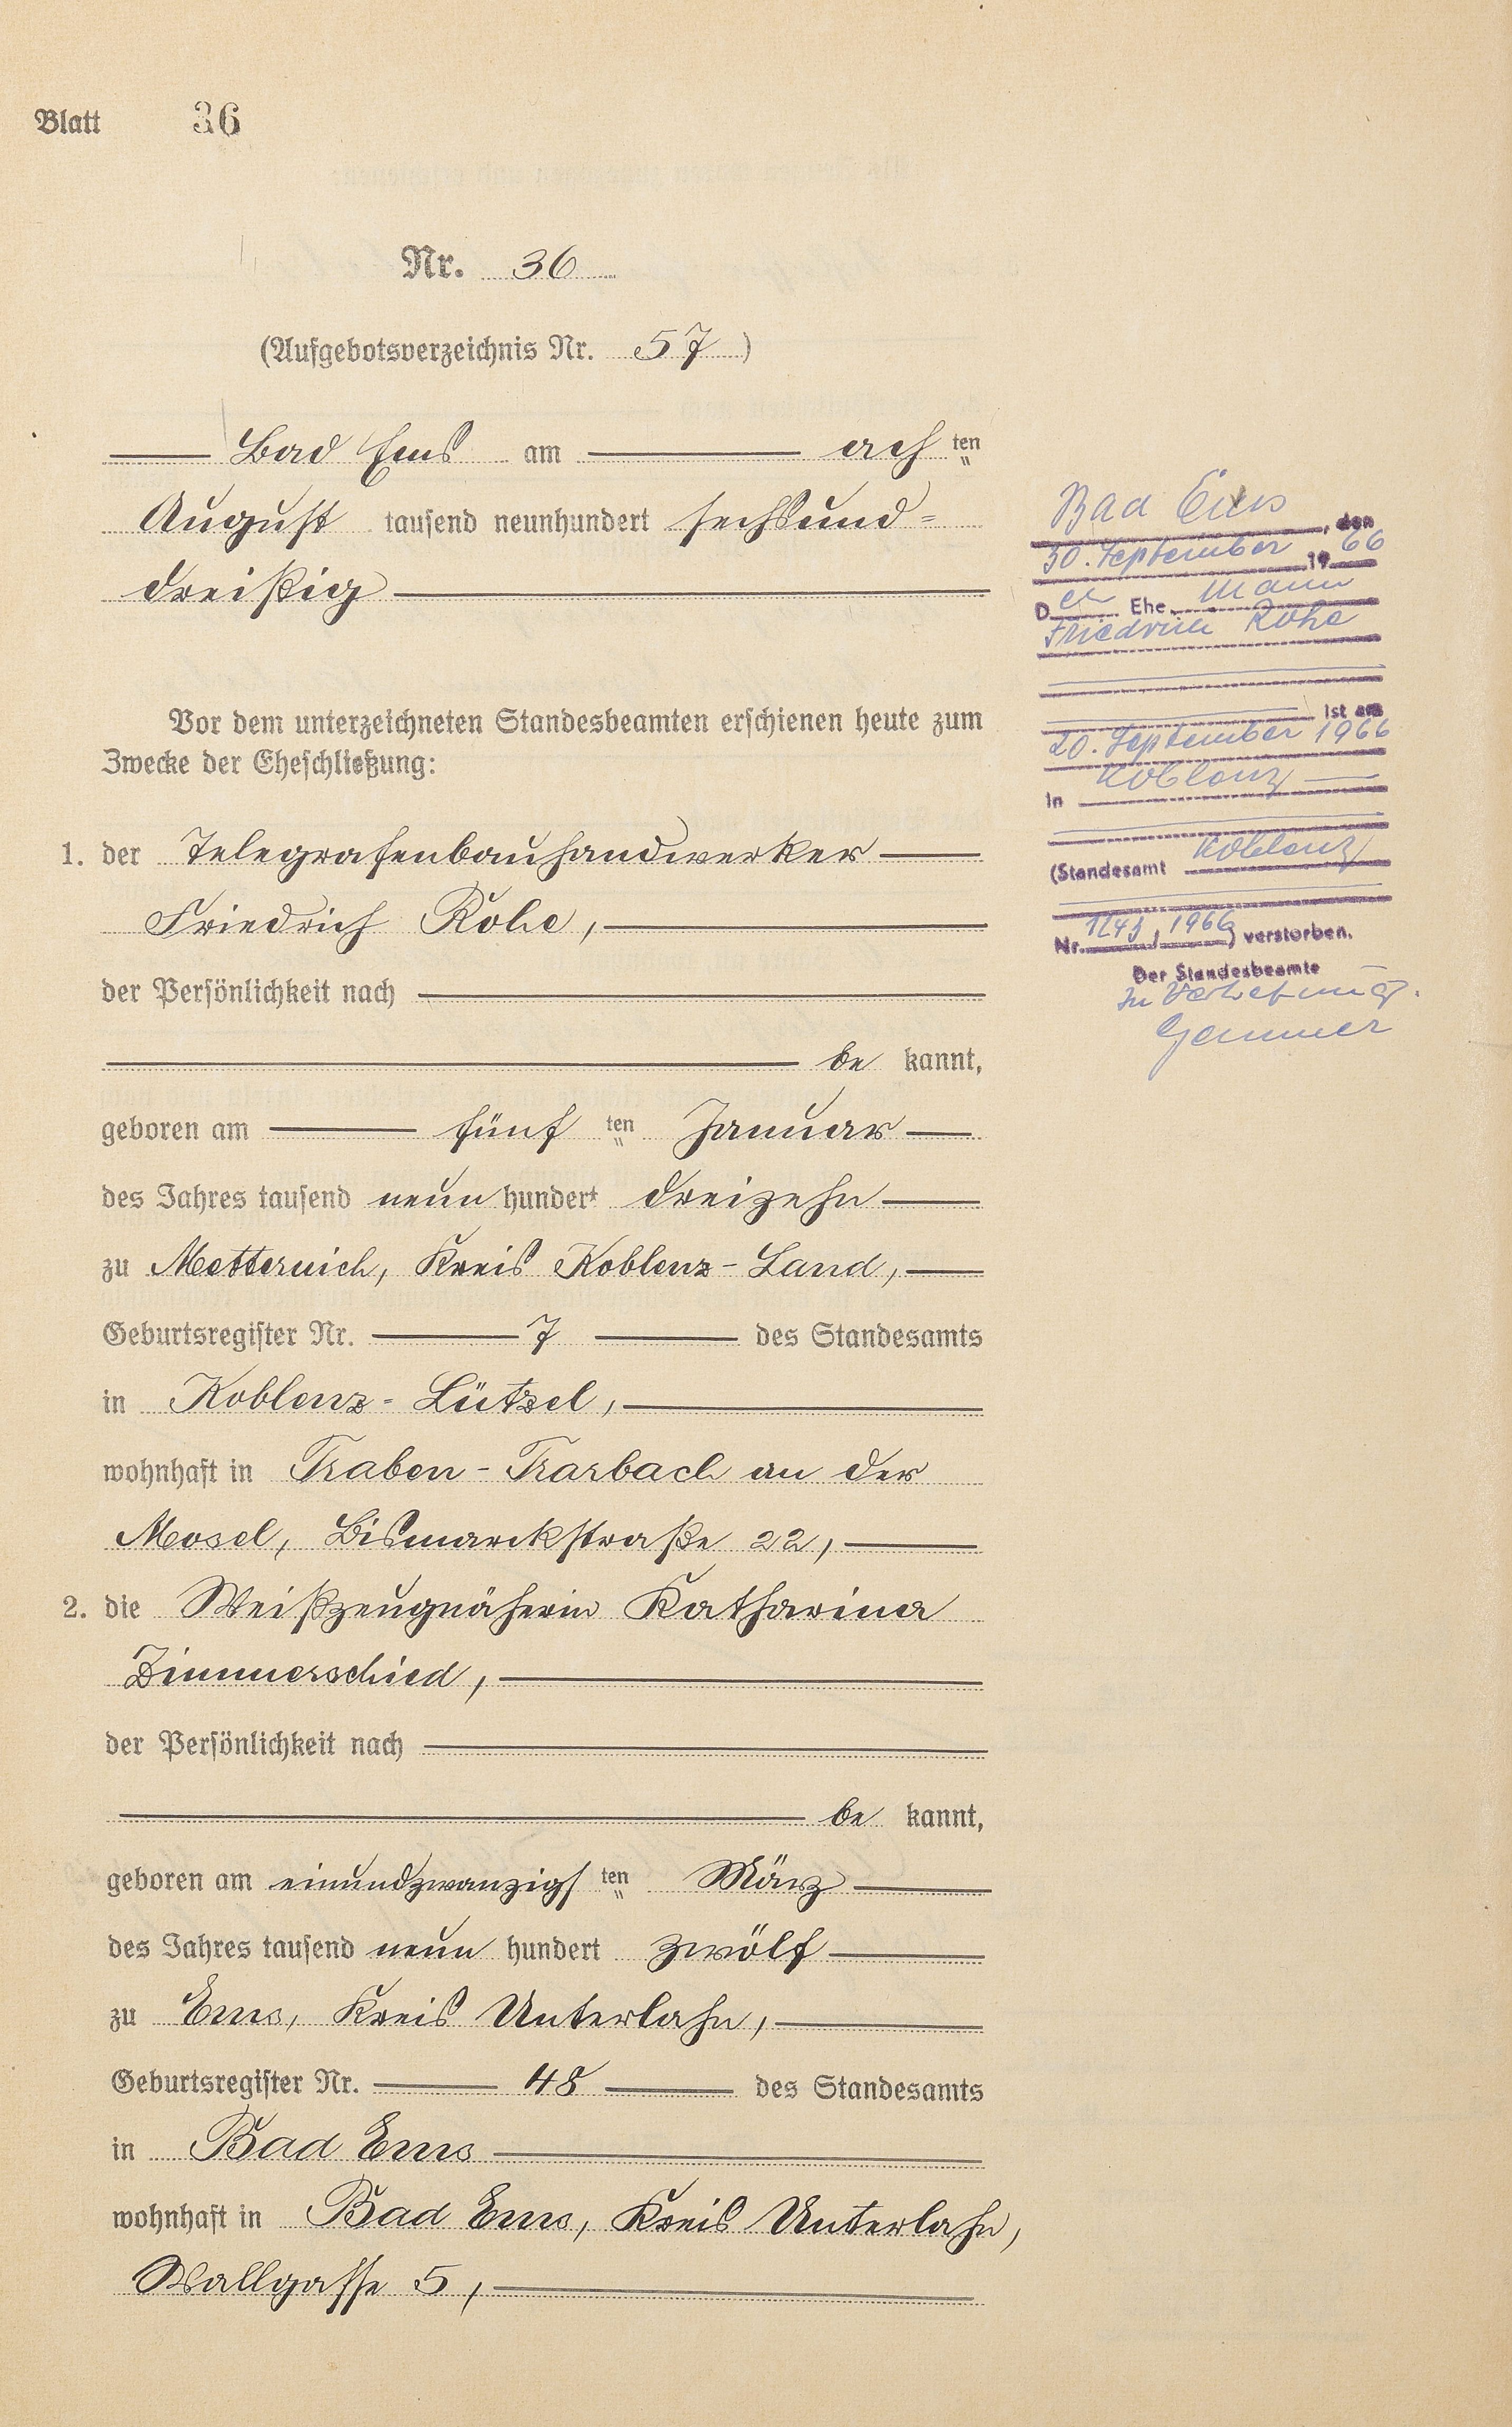 Blatt 36
Nr. 36
(Aufgebotsverzeichnis Nr. 57)
Bad Ems am ach ten
August tausend neunhundert sechsund=
dreißig
Vor dem unterzeichneten Standesbeamten erschienen heute zum
Zwecke der Eheschließung:
1. der Telegrafenbauhandwerker
Friedrich Rohe,
der Persönlichkeit nach
be kannt,
geboren am fünf ten Januar
des Jahres tausend neun hundert dreizehn
zu Metternich, Kreis Koblenz-Land,
Geburtsregister Nr. 7 des Standesamts
in Koblenz-Lützel,
wohnhaft in Traben-Trarbach an der
Mosel, Bismarckstraße 22,
2. die Weißzeugnäherin Katharina
Zimmerschied,
der Persönlichkeit nach
be kannt,
geboren am einundzwanzigs ten März
des Jahres tausend neun hundert zwölf
zu Ems, Kreis Unterlahn,
Geburtsregister Nr. 48 des Standesamts
in Bad Ems
wohnhaft in Bad Ems, Kreis Unterlahn,
Wallgasse 5,
Bad Ems, den
30. September 1966
Der Ehemann
Friedrich Rohe
ist am
20. September 1966
in Koblenz
(Standesamt Koblenz
Nr. 1966) verstorben.
Der Standesbeamte
In Vertretung.